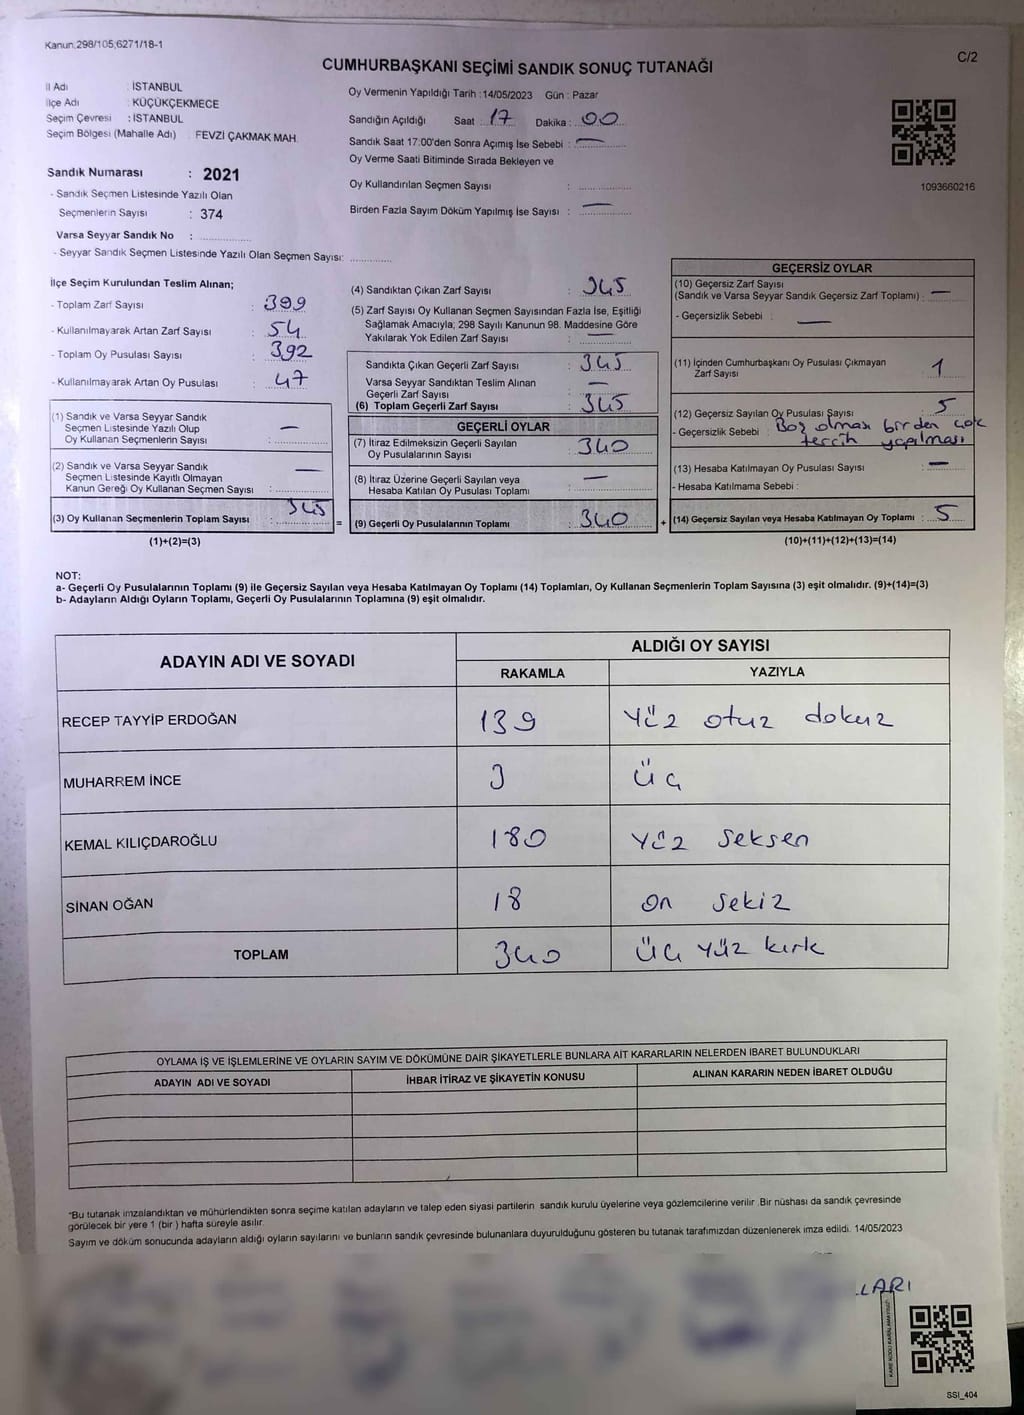 Kanun:298/105,6271/18-1
C/2
CUMHURBAŞKANI SEÇİMİ SANDIK SONUÇ TUTANAĞI
İl Adı : İSTANBUL
İlçe Adı : KÜÇÜKÇEKMECE
Seçim Çevresi : İSTANBUL
Seçim Bölgesi (Mahalle Adı) : FEVZİ ÇAKMAK MAH.
Sandık Numarası : 2021
- Sandık Seçmen Listesinde Yazılı Olan
Seçmenlerin Sayısı : 374
Varsa Seyyar Sandık No :
- Seyyar Sandık Seçmen Listesinde Yazılı Olan Seçmen Sayısı:
Oy Vermenin Yapıldığı Tarih :14/05/2023 Gün : Pazar
Sandığın Açıldığı Saat : 17 Dakika : 00
Sandık Saat 17:00'den Sonra Açımış İse Sebebi : —
Oy Verme Saati Bitiminde Sırada Bekleyen ve
Oy Kullandırılan Seçmen Sayısı :
Birden Fazla Sayım Döküm Yapılmış İse Sayısı : —
1093660216
İlçe Seçim Kurulundan Teslim Alınan;
- Toplam Zarf Sayısı : 399
- Kullanılmayarak Artan Zarf Sayısı : 54
- Toplam Oy Pusulası Sayısı : 392
- Kullanılmayarak Artan Oy Pusulası : 47
(1) Sandık ve Varsa Seyyar Sandık
Seçmen Listesinde Yazılı Olup
Oy Kullanan Seçmenlerin Sayısı : —
(2) Sandık ve Varsa Seyyar Sandık
Seçmen Listesinde Kayıtlı Olmayan
Kanun Gereği Oy Kullanan Seçmen Sayısı : —
(3) Oy Kullanan Seçmenlerin Toplam Sayısı : 345
(1)+(2)=(3)
=
(4) Sandıktan Çıkan Zarf Sayısı : 345
(5) Zarf Sayısı Oy Kullanan Seçmen Sayısından Fazla İse, Eşitliği
Sağlamak Amacıyla, 298 Sayılı Kanunun 98. Maddesine Göre
Yakılarak Yok Edilen Zarf Sayısı : —
Sandıkta Çıkan Geçerli Zarf Sayısı : 345
Varsa Seyyar Sandıktan Teslim Alınan
Geçerli Zarf Sayısı : —
(6) Toplam Geçerli Zarf Sayısı : 345
GEÇERLİ OYLAR
(7) İtiraz Edilmeksizin Geçerli Sayılan
Oy Pusulalarının Sayısı : 340
(8) İtiraz Üzerine Geçerli Sayılan veya
Hesaba Katılan Oy Pusulası Toplamı : —
(9) Geçerli Oy Pusulalarının Toplamı : 340
+
GEÇERSİZ OYLAR
(10) Geçersiz Zarf Sayısı
(Sandık ve Varsa Seyyar Sandık Geçersiz Zarf Toplamı) : —
- Geçersizlik Sebebi : —
(11) İçinden Cumhurbaşkanı Oy Pusulası Çıkmayan
Zarf Sayısı : 1
(12) Geçersiz Sayılan Oy Pusulası Sayısı : 5
- Geçersizlik Sebebi : Boş olması birden çok
tercih yapılması
(13) Hesaba Katılmayan Oy Pusulası Sayısı : —
- Hesaba Katılmama Sebebi :
(14) Geçersiz Sayılan veya Hesaba Katılmayan Oy Toplamı : 5
(10)+(11)+(12)+(13)=(14)
NOT:
a- Geçerli Oy Pusulalarının Toplamı (9) ile Geçersiz Sayılan veya Hesaba Katılmayan Oy Toplamı (14) Toplamları, Oy Kullanan Seçmenlerin Toplam Sayısına (3) eşit olmalıdır. (9)+(14)=(3)
b- Adayların Aldığı Oyların Toplamı, Geçerli Oy Pusulalarının Toplamına (9) eşit olmalıdır.
ADAYIN ADI VE SOYADI
ALDIĞI OY SAYISI
RAKAMLA YAZIYLA
RECEP TAYYİP ERDOĞAN 139 Yüz otuz dokuz
MUHARREM İNCE 3 üç
KEMAL KILIÇDAROĞLU 180 Yüz seksen
SİNAN OĞAN 18 on sekiz
TOPLAM 340 üç yüz kırk
OYLAMA İŞ VE İŞLEMLERİNE VE OYLARIN SAYIM VE DÖKÜMÜNE DAİR ŞİKAYETLERLE BUNLARA AİT KARARLARIN NELERDEN İBARET BULUNDUKLARI
ADAYIN ADI VE SOYADI İHBAR İTİRAZ VE ŞİKAYETİN KONUSU ALINAN KARARIN NEDEN İBARET OLDUĞU
*Bu tutanak imzalandıktan ve mühürlendikten sonra seçime katılan adayların ve talep eden siyasi partilerin sandık kurulu üyelerine veya gözlemcilerine verilir .Bir nüshası da sandık çevresinde
görülecek bir yere 1 (bir ) hafta süreyle asılır.
Sayım ve döküm sonucunda adayların aldığı oyların sayılarını ve bunların sandık çevresinde bulunanlara duyurulduğunu gösteren bu tutanak tarafımızdan düzenlenerek imza edildi. 14/05/2023
LARI
KARE KODU KARALAMAYINIZ!
SSI_404